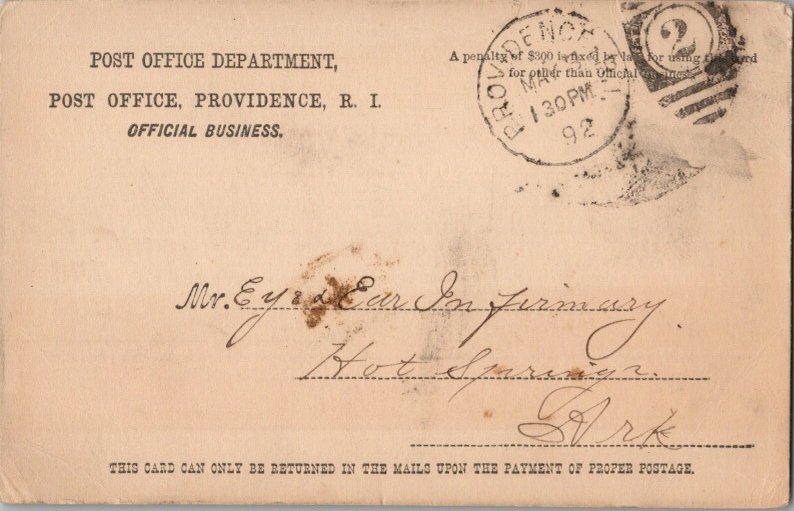 POST OFFICE DEPARTMENT,
POST OFFICE, PROVIDENCE, R. I.
OFFICIAL BUSINESS.
A penalty of $300 is fixed by law for using this card
for other than Official Business.
PROVIDENCE
2
130PM
92
Mr. Eye & Ear Infirmary.
Hot Springs.
Ark
THIS CARD CAN ONLY BE RETURNED IN THE MAILS UPON THE PAYMENT OF PROPER POSTAGE.